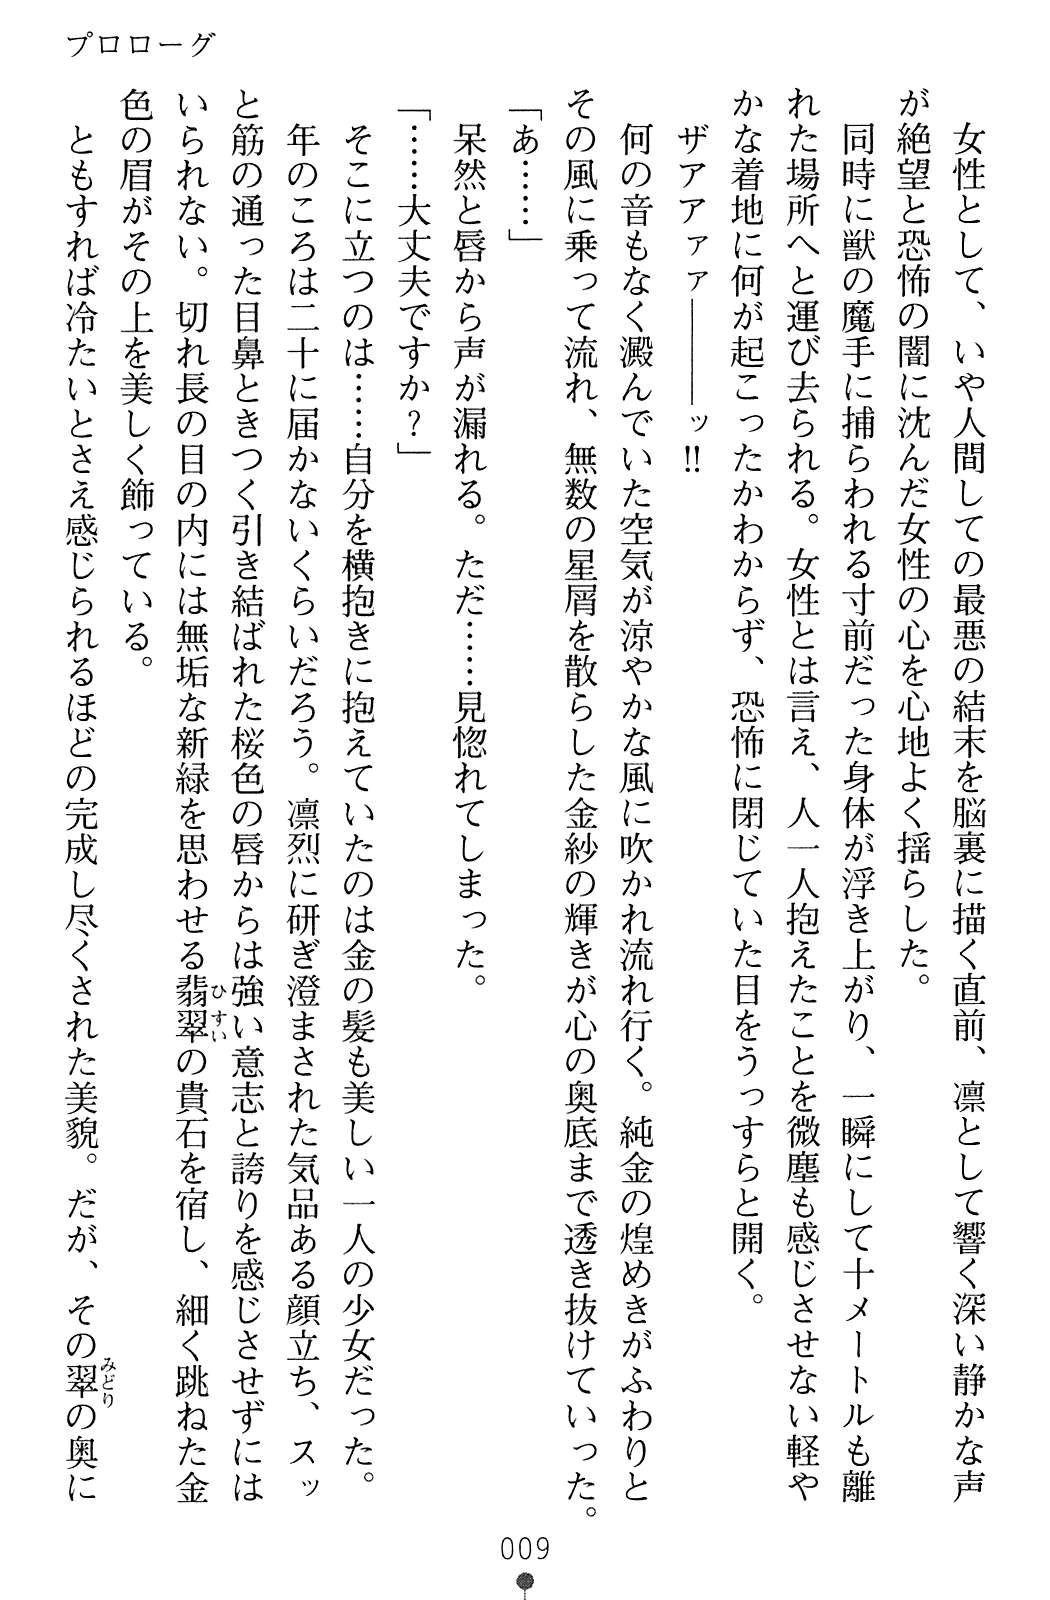 プロローグ
女性として、いや人間しての最悪の結末を脳裏に描く直前、凛として響く深い静かな声
が絶望と恐怖の闇に沈んだ女性の心を心地よく揺らした。
同時に獣の魔手に捕らわれる寸前だった身体が浮き上がり、一瞬にして十メートルも離
れた場所へと運び去られる。女性とは言え、人一人抱えたことを微塵も感じさせない軽や
かな着地に何が起こったかわからず、恐怖に閉じていた目をうっすらと開く。
ザアアァァ――――ッ!!
何の音もなく澱んでいた空気が涼やかな風に吹かれ流れ行く。純金の煌めきがふわりと
その風に乗って流れ、無数の星屑を散らした金紗の輝きが心の奥底まで透き抜けていった。
「あ……」
呆然と唇から声が漏れる。ただ……見惚れてしまった。
「……大丈夫ですか？」
そこに立つのは……自分を横抱きに抱えていたのは金の髪も美しい一人の少女だった。
年のころは二十に届かないくらいだろう。凛烈に研ぎ澄まされた気品ある顔立ち、スッ
と筋の通った目鼻ときつく引き結ばれた桜色の唇からは強い意志と誇りを感じさせずには
いられない。切れ長の目の内には無垢な新緑を思わせる翡翠の貴石を宿し、細く跳ねた金
ひすい
色の眉がその上を美しく飾っている。
ともすれば冷たいとさえ感じられるほどの完成し尽くされた美貌。だが、その翠の奥に
みどり
009